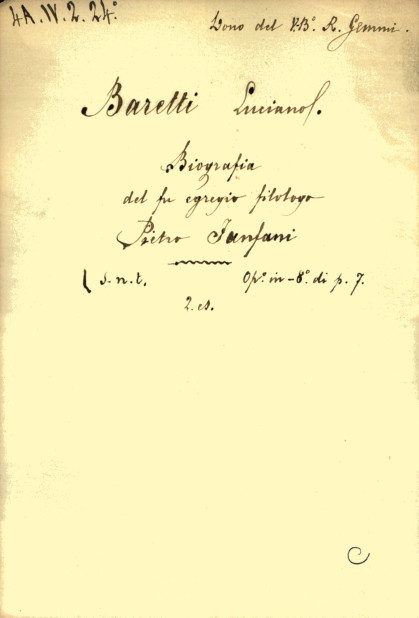 4A.IV.2.24°
Dono del V.B.° R. Gemmi.
Baretti Luciano.
Biografia
del fu egregio filologo
Pietro Fanfani
(s.n.t. Op.° in-8.° di p. 7.
2. es.
C